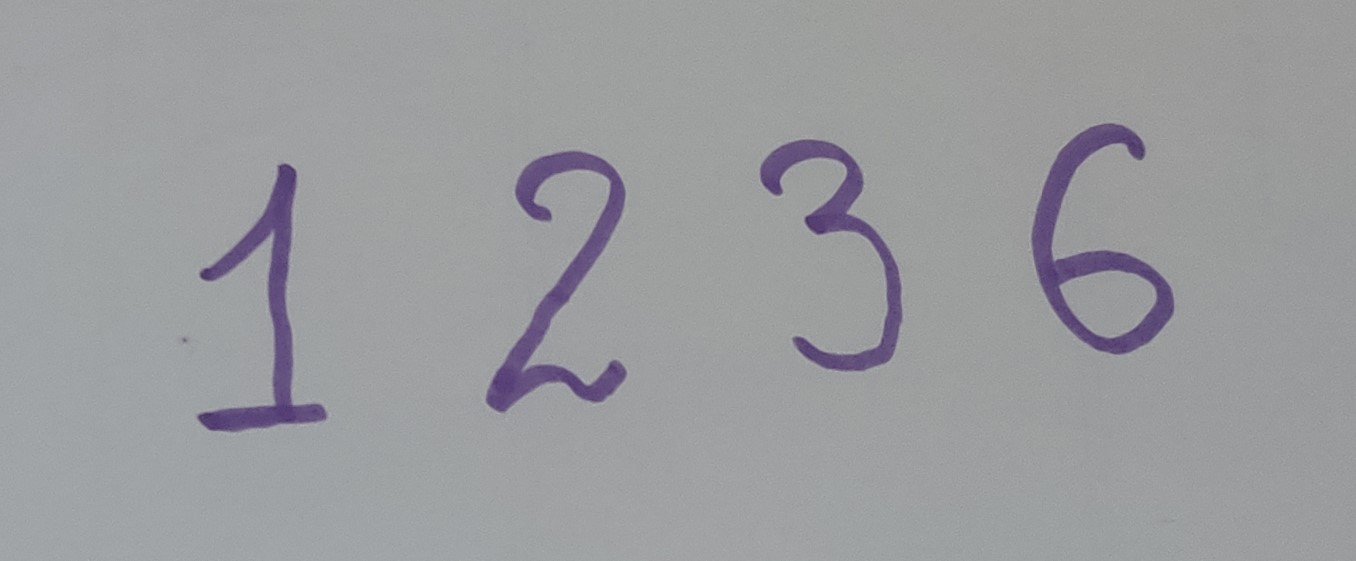 1 2 3 6